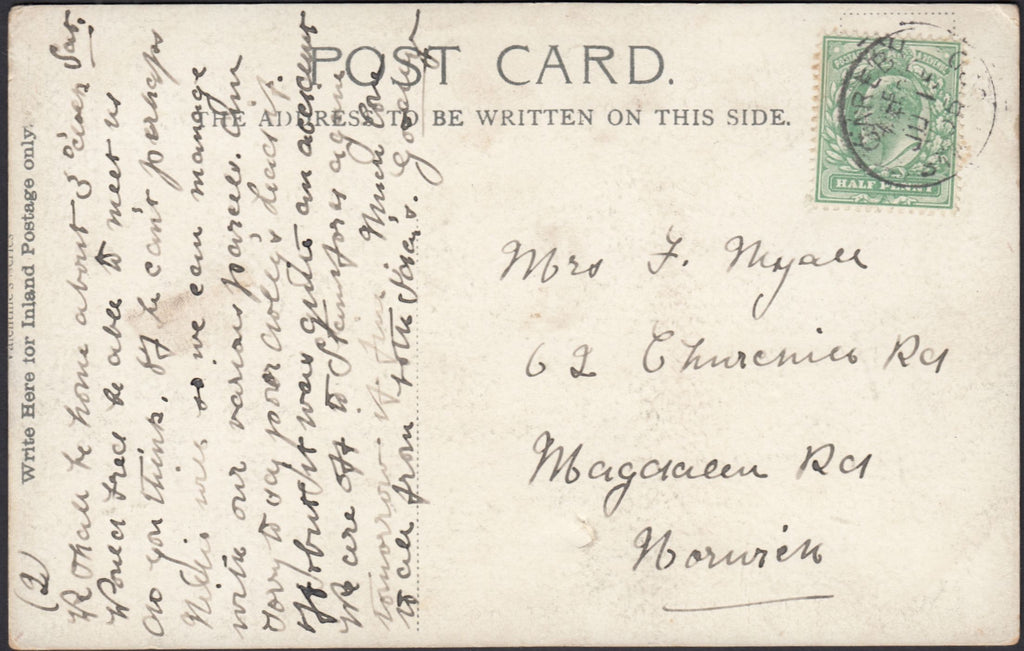 POST CARD.
THE ADDRESS TO BE WRITTEN ON THIS SIDE.
Write Here for Inland Postage only.
HALF PENNY
Mrs F. Myall
62 Churchill Rd
Magdalen Rd
Norwich
(2
Shall be home about 5 o'clock Sat.
Would Fred be able to meet us
do you think, If he can't perhaps
Willis will so we can manage
with our various parcels. Am
sorry to say poor dolly's head is
off but it was quite an accident
We are off to again
tomorrow Much love
to all from both. Goodbye